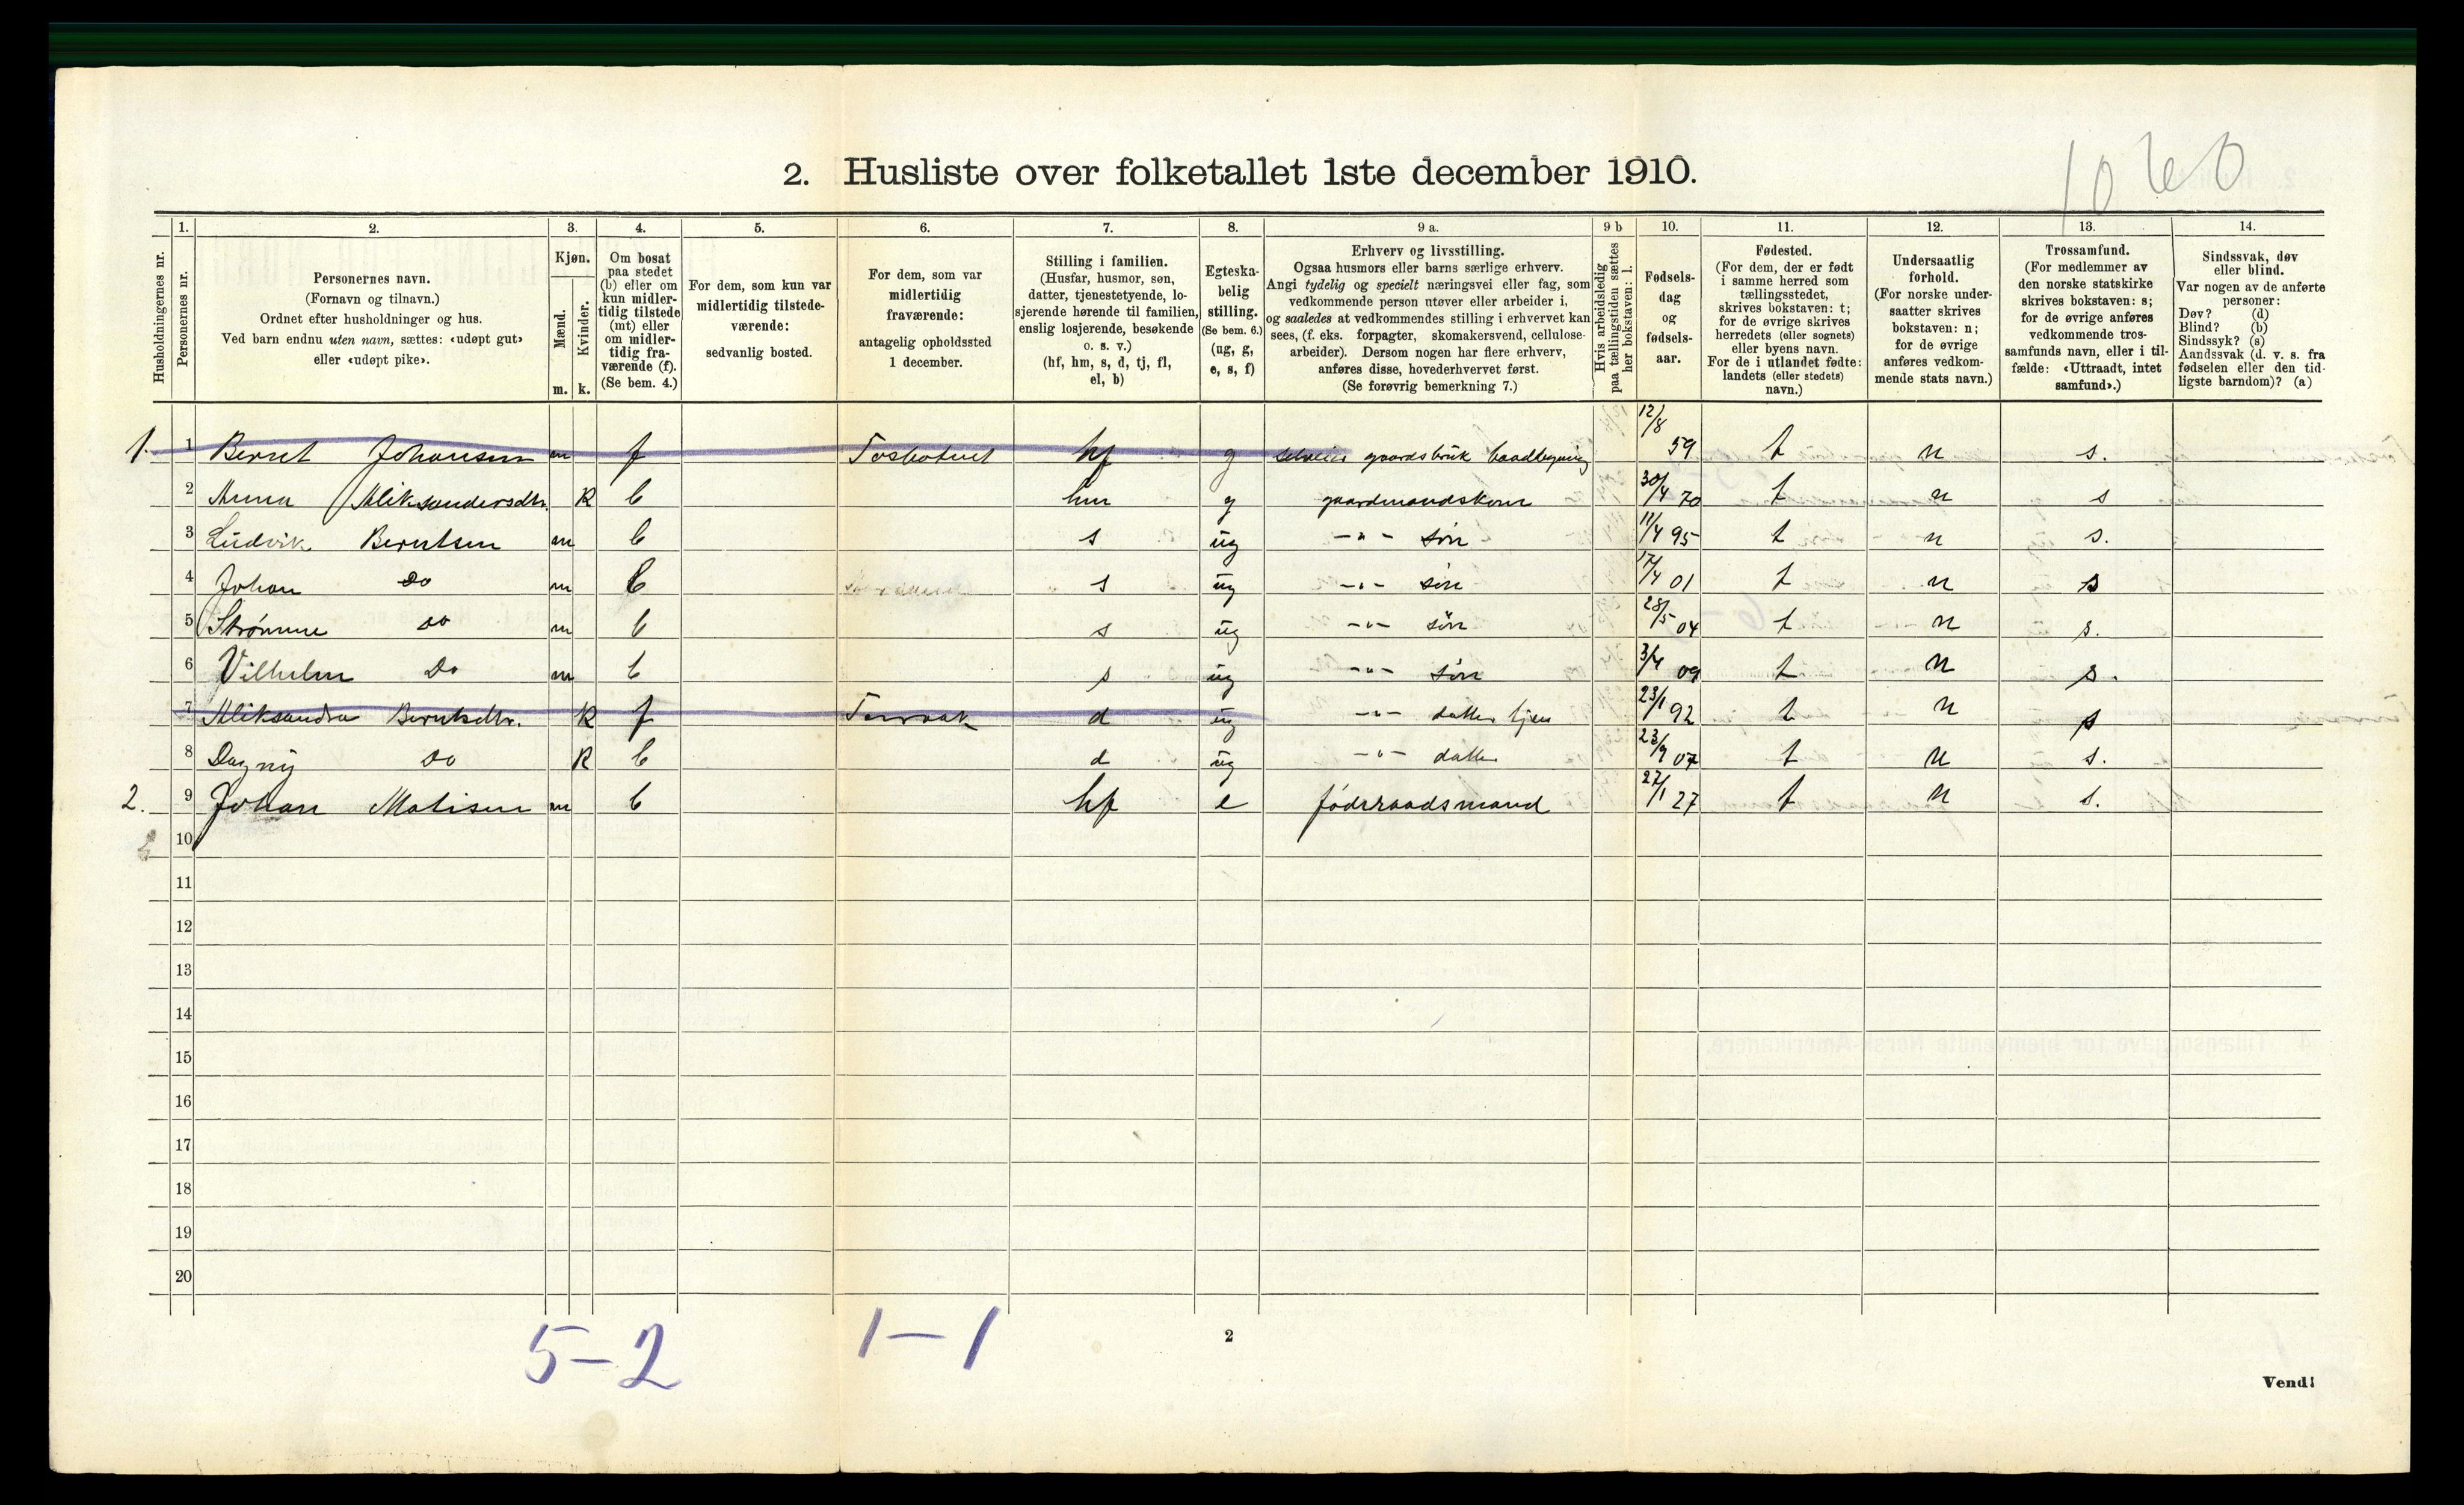 1060
2. Husliste over folketallet 1ste december 1910.
Husholdningernes nr.
1. Personernes nr.
2. Personernes navn. (Fornavn og tilnavn.) Ordnet efter husholdninger og hus. Ved barn endnu uten navn, sættes: «udøpt gut» eller «udøpt pike».
3. Kjøn. Mænd. m. Kvinder. k.
4. Om bosat paa stedet (b) eller om kun midlertidig tilstede (mt) eller om midlertidig fraværende (f). (Se bem. 4.)
5. For dem, som kun var midlertidig tilstedeværende: sedvanlig bosted.
6. For dem, som var midlertidig fraværende: antagelig opholdssted 1 december.
7. Stilling i familien. (Husfar, husmor, søn, datter, tjenestetyende, losjerende hørende til familien, enslig losjerende, besøkende o. s. v.) (hf, hm, s, d, tj, fl, el, b)
8. Egteskabelig stilling. (Se bem. 6.) (ug, g, e, s, f)
9 a. Erhverv og livsstilling. Ogsaa husmors eller barns særlige erhverv. Angi tydelig og specielt næringsvei eller fag, som vedkommende person utøver eller arbeider i, og saaledes at vedkommendes stilling i erhvervet kan sees, (f. eks. forpagter, skomakersvend, cellulosearbeider). Dersom nogen har flere erhverv, anføres disse, hovederhvervet først. (Se forøvrig bemerkning 7.)
9 b Hvis arbeidsledig paa tællingstiden sættes her bokstaven: l.
10. Fødselsdag og fødselsaar.
11. Fødested. (For dem, der er født i samme herred som tællingsstedet, skrives bokstaven: t; for de øvrige skrives herredets (eller sognets) eller byens navn. For de i utlandet fødte: landets (eller stedets) navn.)
12. Undersaatlig forhold. (For norske undersaatter skrives bokstaven: n; for de øvrige anføres vedkommende stats navn.)
13. Trossamfund. (For medlemmer av den norske statskirke skrives bokstaven: s; for de øvrige anføres vedkommende trossamfunds navn, eller i tilfælde: «Uttraadt, intet samfund».)
14. Sindssvak, døv eller blind. Var nogen av de anførte personer: Døv? (d) Blind? (b) Sindssyk? (s) Aandssvak (d. v. s. fra fødselen eller den tidligste barndom)? (a)
1. 1 Bernt Johansen m f Tosbotnet hf g selveier gaardsbruk baadbygning 12/8 59 t n s.
2 Anna Aliksandersdtr. K b hm g gaardmandskone 30/4 70 t n s
3 Ludvik Berntsen m b s ug -"- søn 11/4 95 t n s.
4 Johan Do m b s ug -"- søn 17/4 01 t n s
5 Strømme Do m b s ug -"- søn 28/5 04 t n s.
6 Vilhelm Do m b s ug -"- søn 3/4 09 t n s.
7 Aliksandra Berntsdtr. K f Torvak d ug -"- datter tjen 23/1 92 t n s
8 Dagny Do K b d ug -"- datter 23/9 07 t n s.
2. 9 Johan Matisen m b hf e föderaadsmand 27/1 27 t n s.
10
11
12
13
14
15
16
17
18
19
20
5-2 1-1
2
Vend!